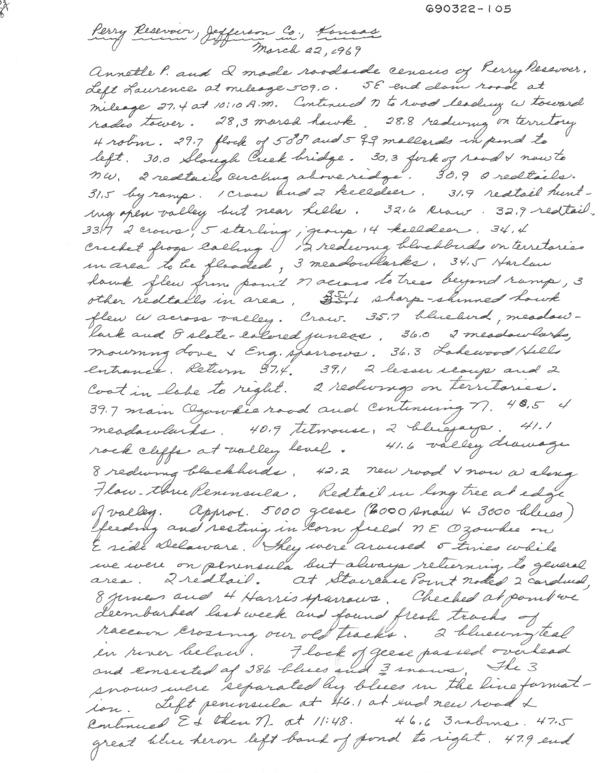 690322-105
Perry Resevoir, Jefferson Co., Kansas
March 22, 1969
Annette P. and I made roadside census of Perry Resevoir.
Left Lawrence at mileage 509.0. SE end dam road at
mileage 27.4 at 10:10 A.M. Continued N to road leading W toward
radio tower. 28.3 marsh hawk. 28.8 redwing on territory
4 robin. 29.7 flock of 5♂♂ and 5♀♀ mallards in pond to
left. 30.0 Slough Creek bridge. 30.3 fork of road & now to
NW. 2 redtails circling above ridge. 30.9 2 redtails.
31.5 by ramp. 1 crow and 2 killdeer. 31.9 redtail hunt-
ing open valley but near hills. 32.6 crow. 32.9 redtail.
33.7 2 crows, 5 starling, group 14 killdeer. 34.4
cricket frogs calling, 12 redwing blackbirds on territories
in area to be flooded, 3 meadowlarks. 34.5 Harlan
hawk flew from point N across to trees beyond ramp, 3
other redtails in area. sharp-shinned hawk
flew W across valley. Crow. 35.7 bluebird, meadow-
lark and 8 slate-colored juncos. 36.0 2 meadowlarks,
mourning dove & Eng. sparrows. 36.3 Lakewood Hills
entrance. Return 37.4. 39.1 2 lesser scaup and 2
coot in lake to right. 2 redwings on territories.
39.7 main Ozawkie road and continuing N. 40.5 4
meadowlarks. 40.9 titmouse, 2 bluejays. 41.1
rock cliffs at valley level. 41.6 valley drawage
8 redwing blackbirds. 42.2 new road & now W along
Flow-thru Peninsula. Redtail in long tree at edge
of valley. Approx. 5000 geese (2000 snow & 3000 blues)
feeding and resting in corn field NE Ozawkie on
E side Delaware. They were aroused 5 times while
we were on peninsula but always returning to general
area. 2 redtail. At Staircase Point noted 2 cardinal,
8 juncos and 4 Harris sparrows. Checked at point we
deembarked last week and found fresh tracks of
raccoon crossing our old tracks. 2 bluewing teal
in river below. Flock of geese passed overhead
and consisted of 286 blues and 3 snows. The 3
snows were separated by blues in the line format-
ion. Left peninsula at 46.1 at end new road &
continued E & then N. at 11:48. 46.6 3 robins. 47.5
great blue heron left bank of pond to right. 47.9 end